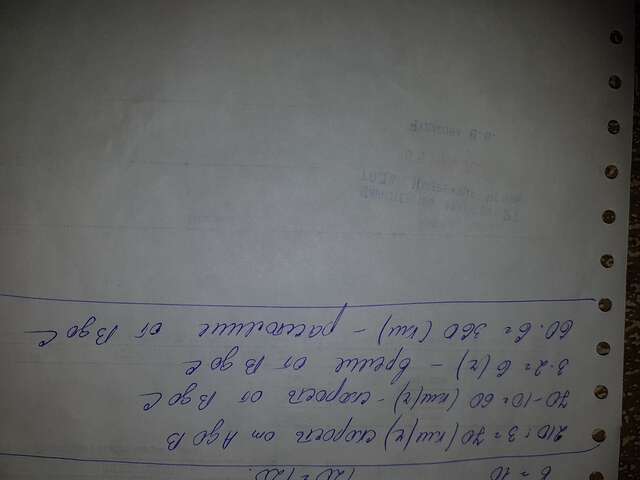 в = 10
120 = 120.
210 : 3 = 70 (км/ч) скорость от А до В
70 - 10 = 60 (км/ч) - скорость от В до С
3 · 2 = 6 (ч) - время от В до С
60 · 6 = 360 (км) - расстояние от В до С